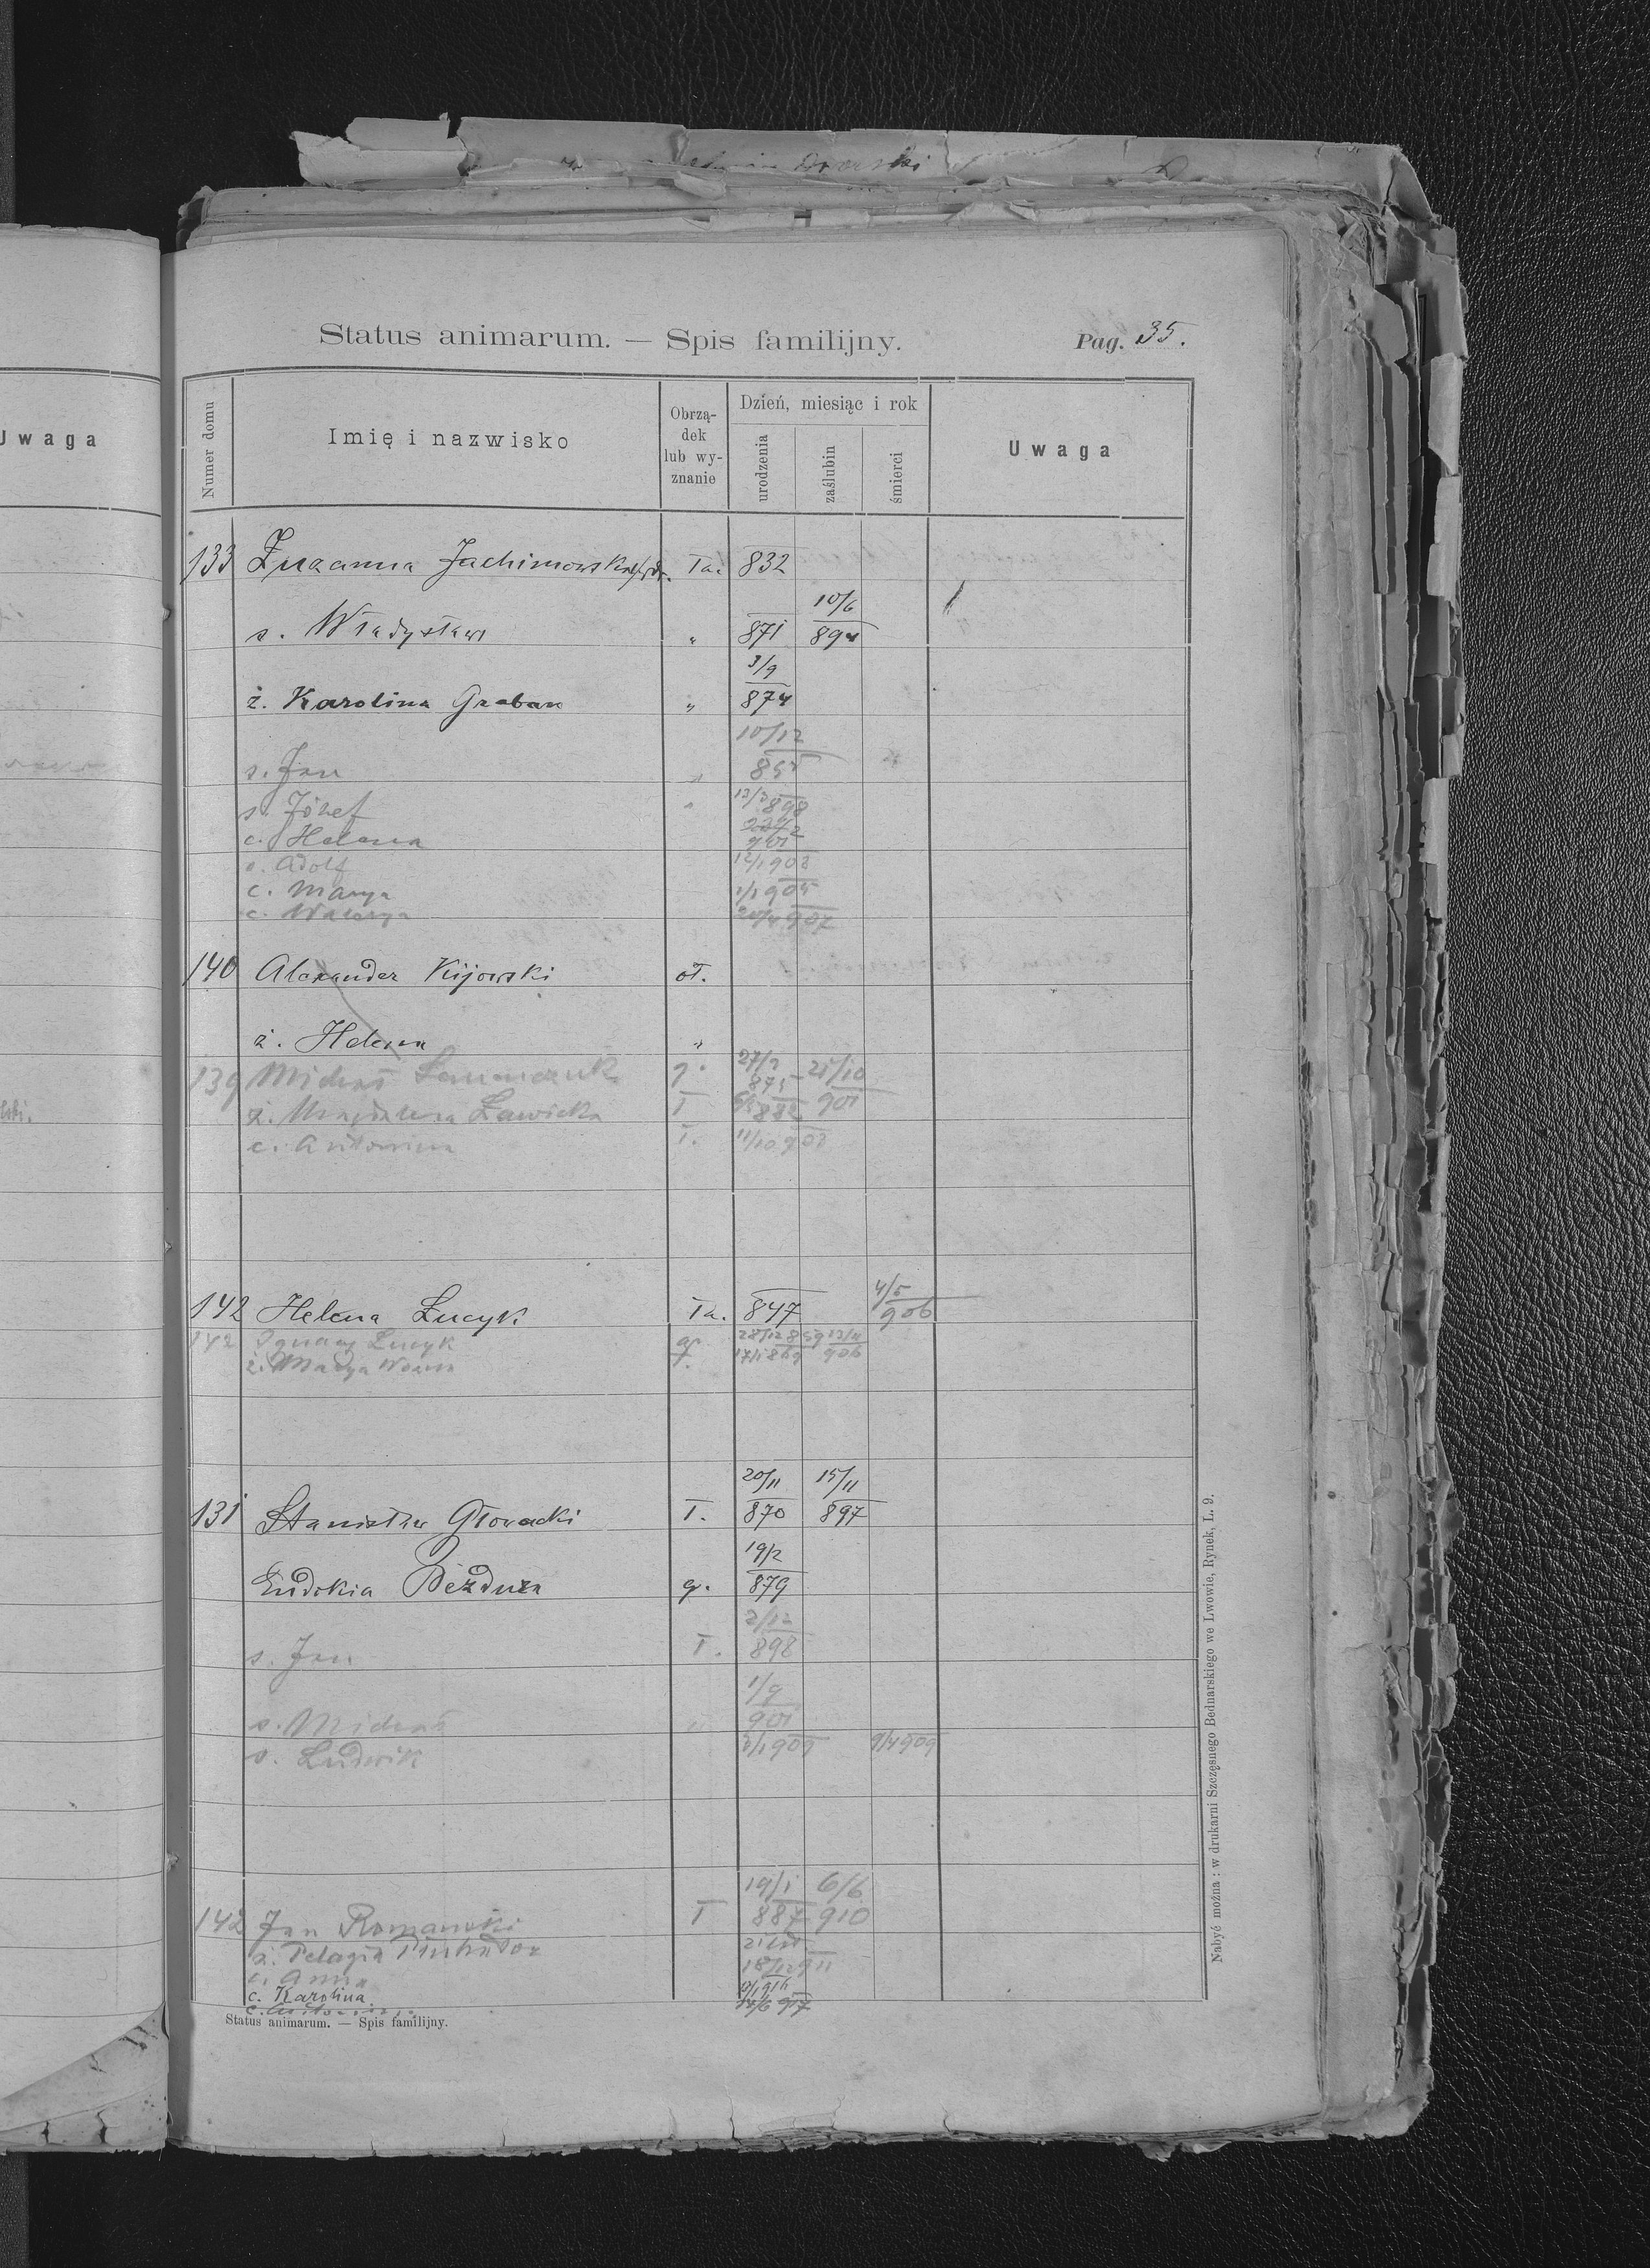 Status animarum. — Spis familijny.
Pag. 35.
Uwaga
Numer domu
Imię i nazwisko
Obrzą-
dek
lub wy-
znanie
Dzień, miesiąc i rok
urodzenia
zaślubin
śmierci
Uwaga
133 Zuzanna Jachimowska 832
10/6
s. Władysław " 871 894
3/9
ż. Karolina Graban " 874
10/12
s. Jan "
s. Józef " 13/3 898
c. Helena 901
s. Adolf
c. Marya 1/1 905
c. Walerya 907
140 Alexander Kijowski oł.
ż. Helena "
139 Michał g. 27/2 875 21/10 901
ż. Magdalena Ławicka ł 882
c. Antonina ł. 11/10 903
142 Helena Łucyk ła. 847 4/5 906
142 Ignacy Łucyk 28/12 859 906
ż. Marya 869
20/11 15/11
131 Stanisław Głowacki ł. 870 897
19/2
Eudokia Bezduza g. 879
2/12
s. Jan ł. 898
1/9
s. Michał " 901
s. Ludwik 909 909
19/1 6/6
142 Jan Romanski ł 887 910
ż. Pelagia
c. Anna 18/12 911
c. Karolina 916
c. Antonina 917
Status animarum. — Spis familijny.
Nabyć można: w drukarni Szczęsnego Bednarskiego we Lwowie, Rynek, L. 9.